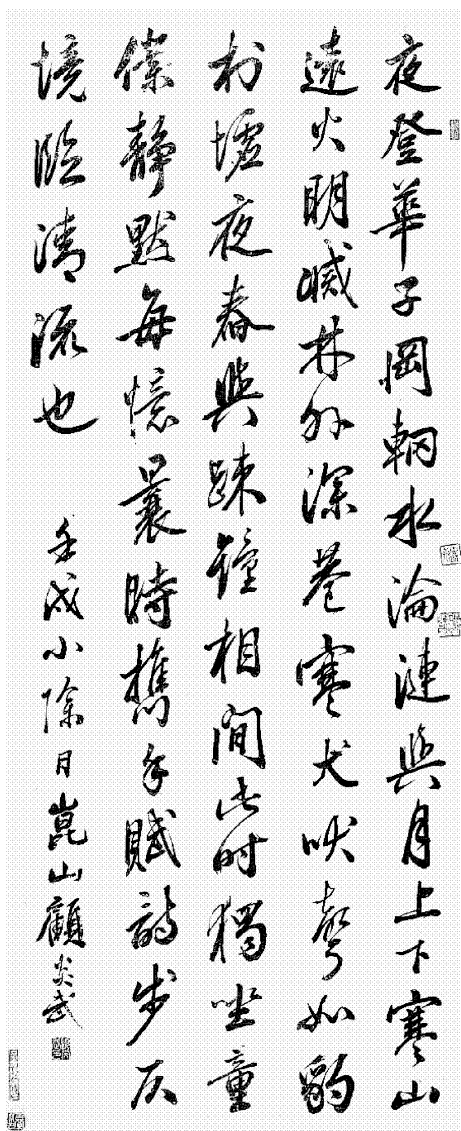 夜登華子岡輞水淪漣與月上下寒山
遠火明滅林外深巷寒犬吠聲如豹
村墟夜舂與疎鐘相間此時獨坐童
僕靜默每憶曩時攜手賦詩步仄
境臨清流也
壬戌小除日崑山顧炎武